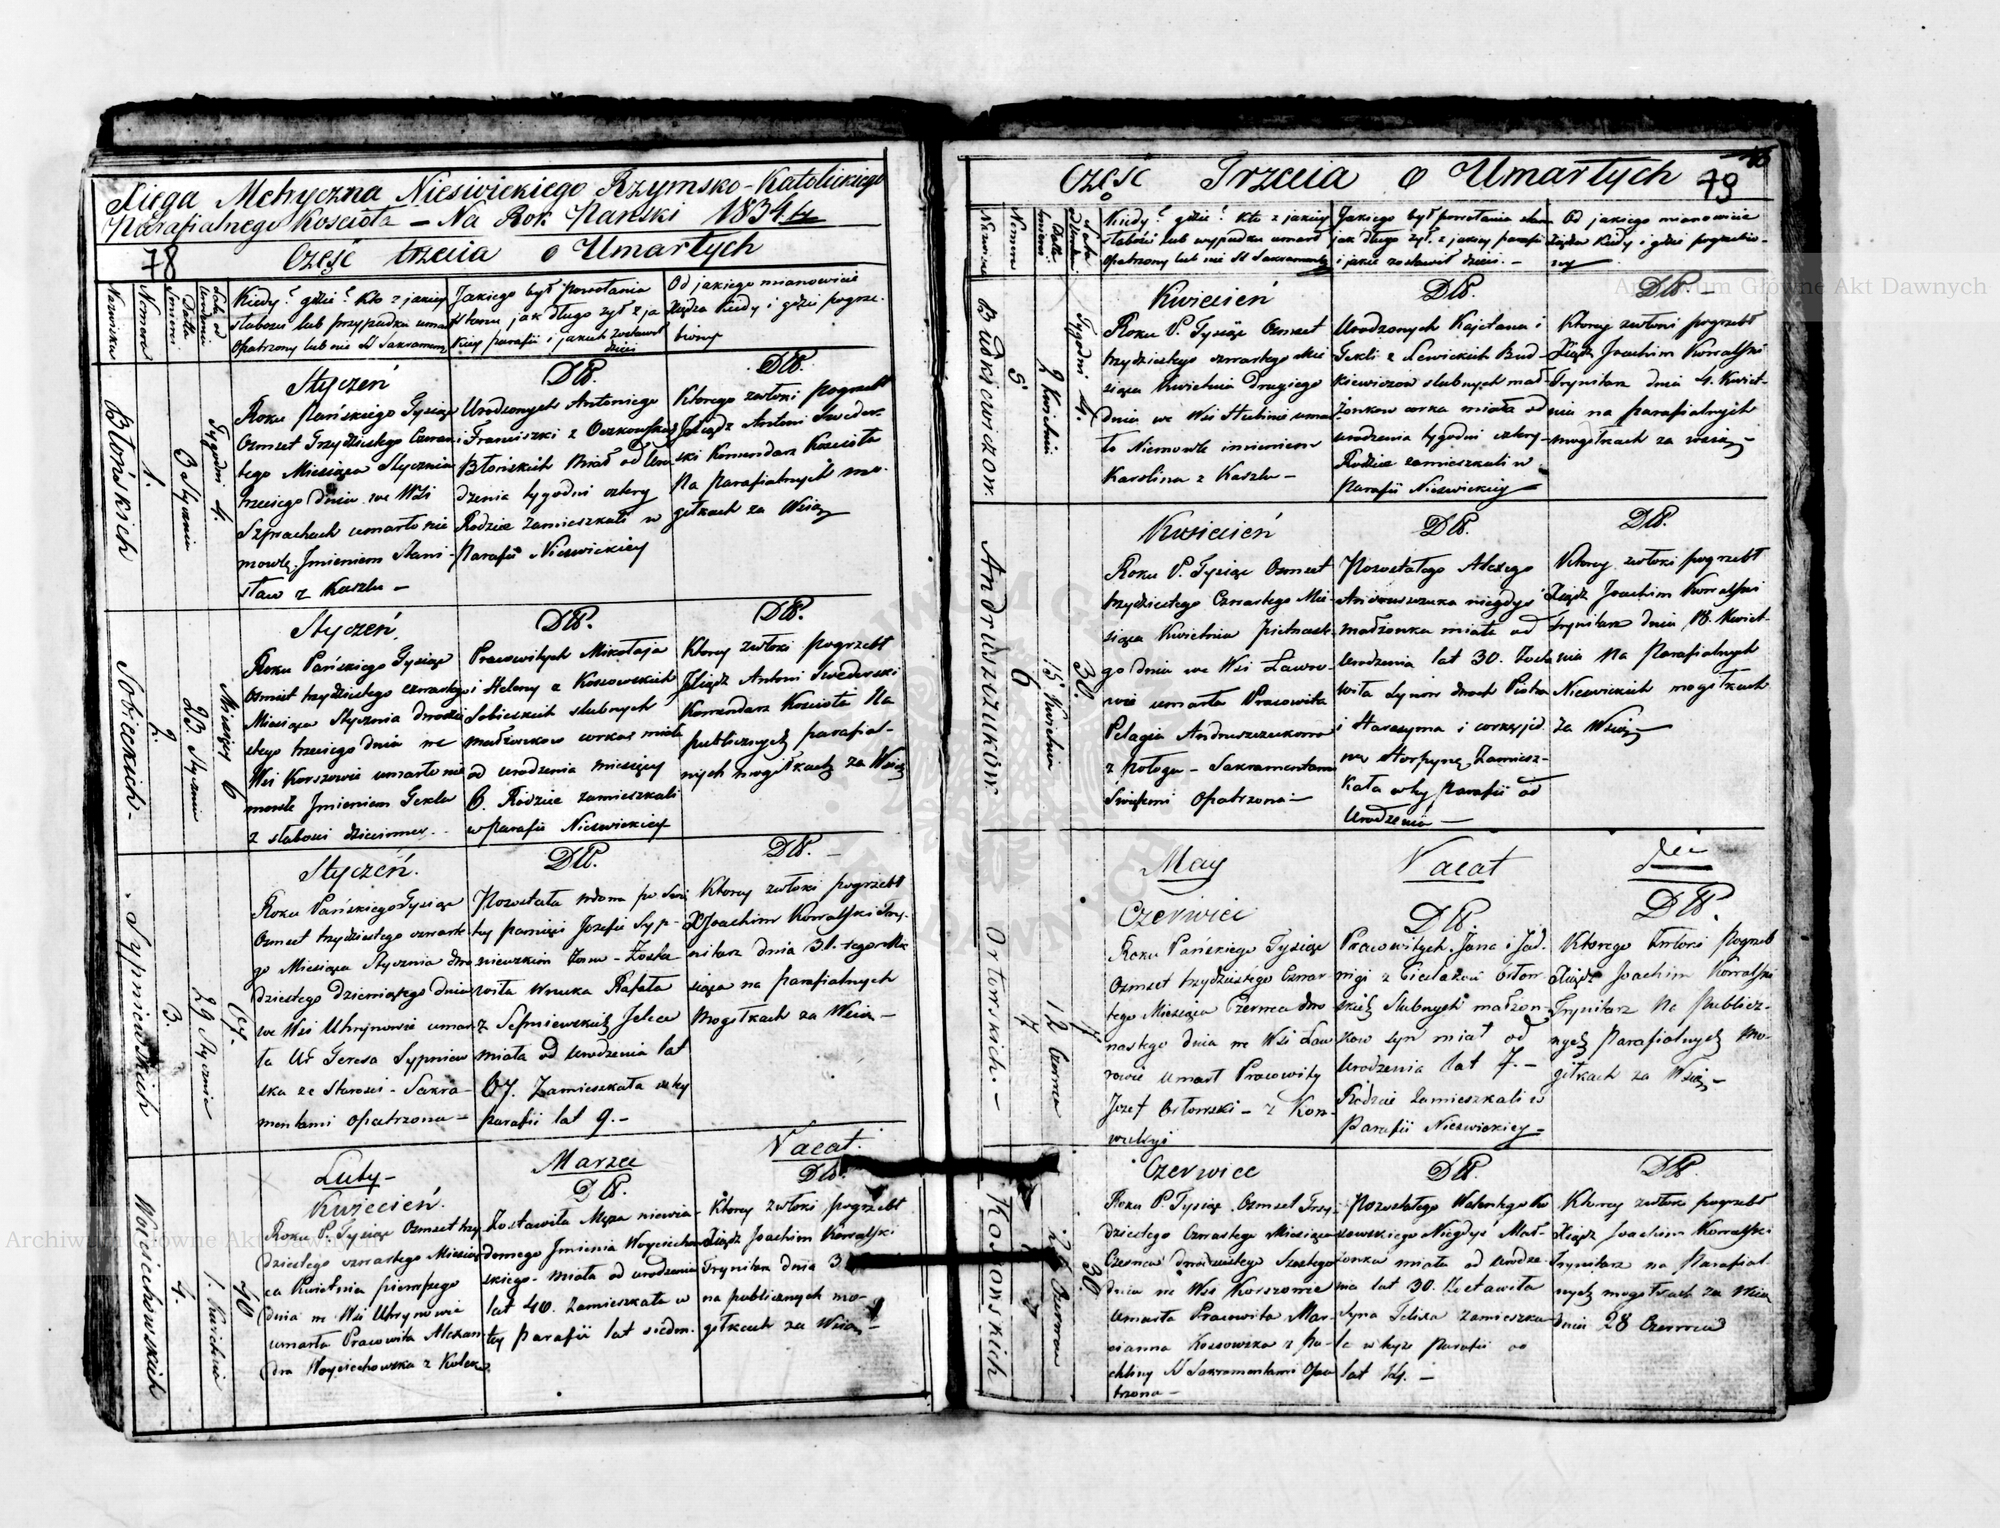 Xięga Metryczna Nieswickiego Rzymsko-Katolickiego
Parafialnego Koscioła – Na Rok Panski 1834
78
Część trzecia o Umarłych
Nazwiska
Numera
Datta Smierci
Lata od Urodzenia
Kiedy? gdzie? Kto z jakiey
słabosci lub przypadku umarł
Opatrzony lub nie SS Sakramen
Jakiego był powołania
stanu jak długo żył z ja
kiey parafii i jakich zostawił
dzieci
Od jakiego mianowicie
Xiędza Kiedy i gdzie pogrze-
biony
Błońskich
1.
3 Stycznia
Tygodni 4.
Styczeń
Roku Pańskiego Tysiąc
Ozmset Trzydziestego Czwar
tego Miesiąca Stycznia
trzeciego dnia we Wsi
Szprachach umarło nie
mowlę Jmieniem Stani-
sław z Kaszlu –
Urodzonych Antoniego
i Franciszki z Oczkowskich
Błońskich miał od Uro
dzenia tygodni cztery
Rodzice zamieszkali w
Parafii Nieswickiey
Ktorego zwłoki pogrzebł
Xiądz Antoni Sweder
ski Komendarz Koscioła
Na parafialnych mo-
giłkach za Wsią
Sobieckich
2.
23 Stycznia
Miesięcy 6
Styczeń
Roku Pańskiego Tysiąc
Ozmset trzydziestego czwartego
Miesiąca Stycznia dwudzie
stego trzeciego dnia we
Wsi Korszowie umarło nie
mowle Jmieniem Tekla
z słabosci dziecinney
Pracowitych Mikołaja
i Heleny z Kossowskich
Sobieckich slubnych
małżonkow corka miała
od urodzenia miesięcy
6. Rodzice zamieszkali
w parafii Nieswickiey
Ktorey zwłoki pogrzebł
Xiądz Antoni Swederski
Komendarz Kosciola Na
publicznych parafial-
nych mogiłkach za Wsią
Sypniewskich
3.
29 Stycznia
67.
Styczeń.
Roku Pańskiego Tysiąc
Ozmset trzydziestego czwarte
go Miesiąca Stycznia dwu
dziestego dziewiątego dnia
we Wsi Uhrynowie umar
ła Ur Teresa Sypniew
ska ze Starosci – Sakra-
mentami opatrzona –
Pozostała wdowa po Swię
tey pamięci Jozefie Syp-
niewskim Zosta-
wiła Wnuka Rafała
miała od urodzenia lat
67. Zamieszkała w tey
parafii lat 9. –
Ktorey zwłoki pogrzebł
X Joachim Kowalski Try-
nitarz dnia 31. tegoż Mie
siąca na parafialnych
Mogiłkach za Wsią –
Woyciechowskich
4.
1. Kwietnia
40
Luty –
Marzec
Vacat.
Kwiecień.
Roku P. Tysiąc Ozmset trzy
dziestego czwartego Miesią
ca Kwietnia pierwszego
dnia we Wsi Uhrynowie
umarła Pracowita Alexan
dra Woyciechowska z Kolek
Zostawiła Męża niewia
domego Jmienia Woyciechow
skiego – miała od urodzenia
lat 40. Zamieszkała w
tey parafii lat siedm.
Ktorey zwłoki pogrzebł
Xiądz Joachim Kowalski
Trynitarz dnia 3
na publicznych mo-
giłkach za Wsią –
Część Trzecia o Umarłych
79
Nazwiska
Numera
Datta Smierci
Lata od Urodzenia
Kiedy? gdzie? Kto z jakiey
słabości lub wypadku umarł
Opatrzony lub nie SS Sakramentami
Jakiego był powołania stanu
jak długo żył, z jakiey parafii
i jakie zostawił dzieci. –
Od jakiego mianowicie
Xiędza Kiedy i gdzie pogrzebio-
ny
Budkiewiczow.
5
2 Kwietnia
Tygodni 4.
Kwiecień
Roku P. Tysiąc Ozmset
trzydziestego czwartego Mie
siąca Kwietnia drugiego
dnia we Wsi Hubinie umar
ło Niemowle imieniem
Karolina z Kaszlu –
Urodzonych Kajetana i
Tekli z Lewickich Bud-
kiewiczow slubnych mał
żonkow corka miała od
urodzenia tygodni cztery –
Rodzice zamieszkali w
Parafii Nieswickiey
Ktorey zwłoki pogrzebł
Xiądz Joachim Kowalski
Trynitarz dnia 4. Kwiet-
nia na parafialnych
mogiłkach za wsią –
Andruszczukow.
6
15 Kwietnia
30.
Kwiecień
Roku P. Tysiąc Ozmset
trzydziestego Czwartego Mie-
siąca Kwietnia piętnaste
go dnia we Wsi Ławro-
wie umarła Pracowita
Pelagia Andruszczukowa
z Połogu – Sakramentami
Swiętemi opatrzona –
Pozostałego Alexego
Andruszczuka niegdyś
małżonka miała od
Urodzenia lat 30. Zosta
wiła Synow dwoch Piotra
i Harasyma i corkę jed
ną Horpynę, Zamiesz-
kała w tey Parafii od
Urodzenia –
Ktorey zwłoki pogrzebł
Xiądz Joachim Kowalski
Trynitarz dnia 18. Kwiet-
nia Na Parafialnych
Nieswickich mogiłkach
za Wsią –
May
Vacat
Ortowskich. –
7
12 Czerwca
7
Czerwiec
Roku Pańskiego Tysiąc
Ozmset trzydziestego Czwar
tego Miesiąca Czerwca dwu
nastego dnia we Wsi Ław
rowie umarł Pracowity
Jozef Ortowski – z Kon-
wulsyi
Pracowitych Jana i Jad
wigi z Cieslakow Ortow
skich Slubnych małżon
kow syn miał od
Urodzenia lat 7. –
Rodzice Zamieszkali w
Parafii Nieswickiey –
Ktorego zwłoki Pogrzeb
Xiądz Joachim Kowalski
Trynitarz Na Publicz-
nych Parafialnych Mo-
giłkach za Wsią –
Kossowskich
26 Czerwca
30.
Czerwiec
Roku P. Tysiąc Ozmset Trzy-
dziestego Czwartego Miesiąca
Czerwca dwudziestego Szostego
dnia we Wsi Korszowie
Umarła Pracowita Mar
cianna Kossowska z Pu-
chliny SS Sakramentami Opa
trzona –
Pozostałego Walentego Ko
ssowskiego Niegdyś Mał-
żonka miała od urodze-
nia lat 30. Zostawiła
Syna Felixa Zamieszka
ła w tyże Parafii od
lat 14. –
Ktorey zwłoki pogrzebł
Xiądz Joachim Kowalski
Trynitarz na Parafial
nych mogiłkach za Wsią
dnia 28 Czerwca
Archiwum Główne Akt Dawnych
Archiwum Główne Akt Dawnych